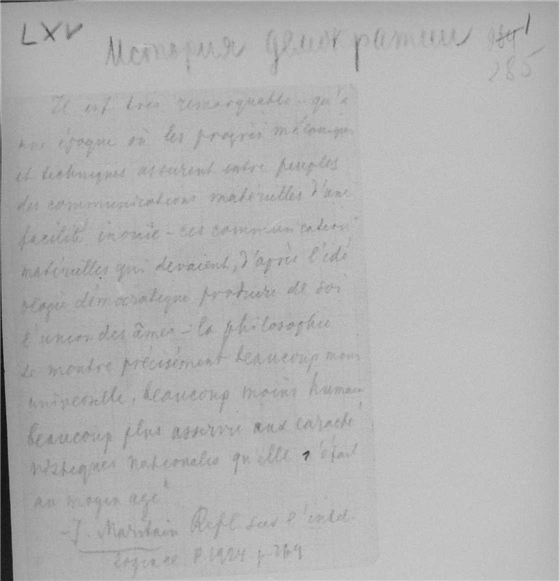 LXV
История демократии 184 1
285
Il est très remarquable qu'à
une époque où les progrès mécaniques
et techniques assurent entre peuples
des communications matérielles d'une
facilité inouïe – ces communications
matérielles qui devaient, d'après l'idé
ologie démocratique produire de soi
l'union des âmes – la philosophie
se montre précisément beaucoup moins
universelle, beaucoup moins humaine
beaucoup plus asservie aux caracté
ristiques nationales qu'elle n'était
au moyen age"
– J. Maritain Refl sur l'intel
ligence P. 1924 p.